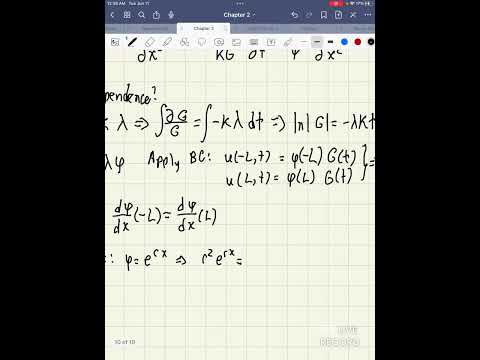 12:36 AM Tue Jun 11
17%
Chapter 2
Chapter 2
∂x² KG ∂t φ ∂x²
pendence?
λ ⇒ ∫∂G/G = ∫-kλ dt ⇒ |n|G| = -λKt
λφ Apply BC: u(-L,t) = φ(-L) G(t) } =
u(L,t) = φ(L) G(t)
dφ/dx (-L) = dφ/dx (L)
: φ = e^{rx} ⇒ r²e^{rx} =
10 of 10
LIVE
RECORD